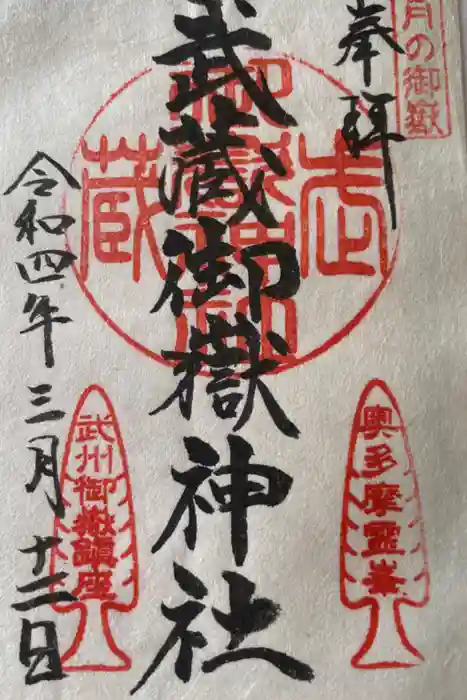 奉拝
月の御嶽
武蔵御嶽神社
奥多摩霊峯
武州御嶽鎮座
令和四年三月十二日